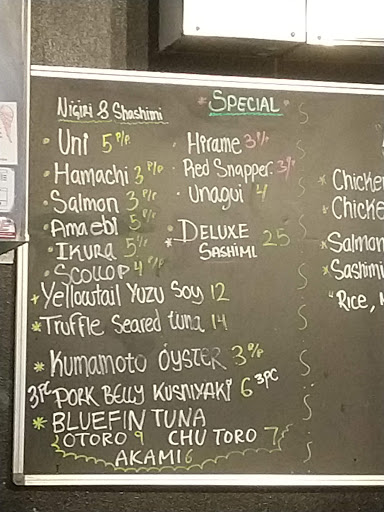 Nigiri & Shashimi
• Uni 5 P/P
• Hamachi 3 P/P
• Salmon 3 P/P
• Amaebi 5 P/P
• Ikura 5
• Scollop 4 P/P
* SPECIAL *
• Hirame 3 P/P
• Red Snapper 3 P/P
• Unagui 4
* DELUXE 25
SASHIMI
* Yellowtail Yuzu Soy 12
* Truffle Seared tuna 14
* Kumamoto OYSTER 3 P/P
3PC PORK BELLY KUSHIYAKI 6 3PC
* BLUEFIN TUNA
OTORO 9 CHU TORO 7
AKAMI 6
* Chicke
* Chicke
* Salmon
* Sashimi
"Rice,